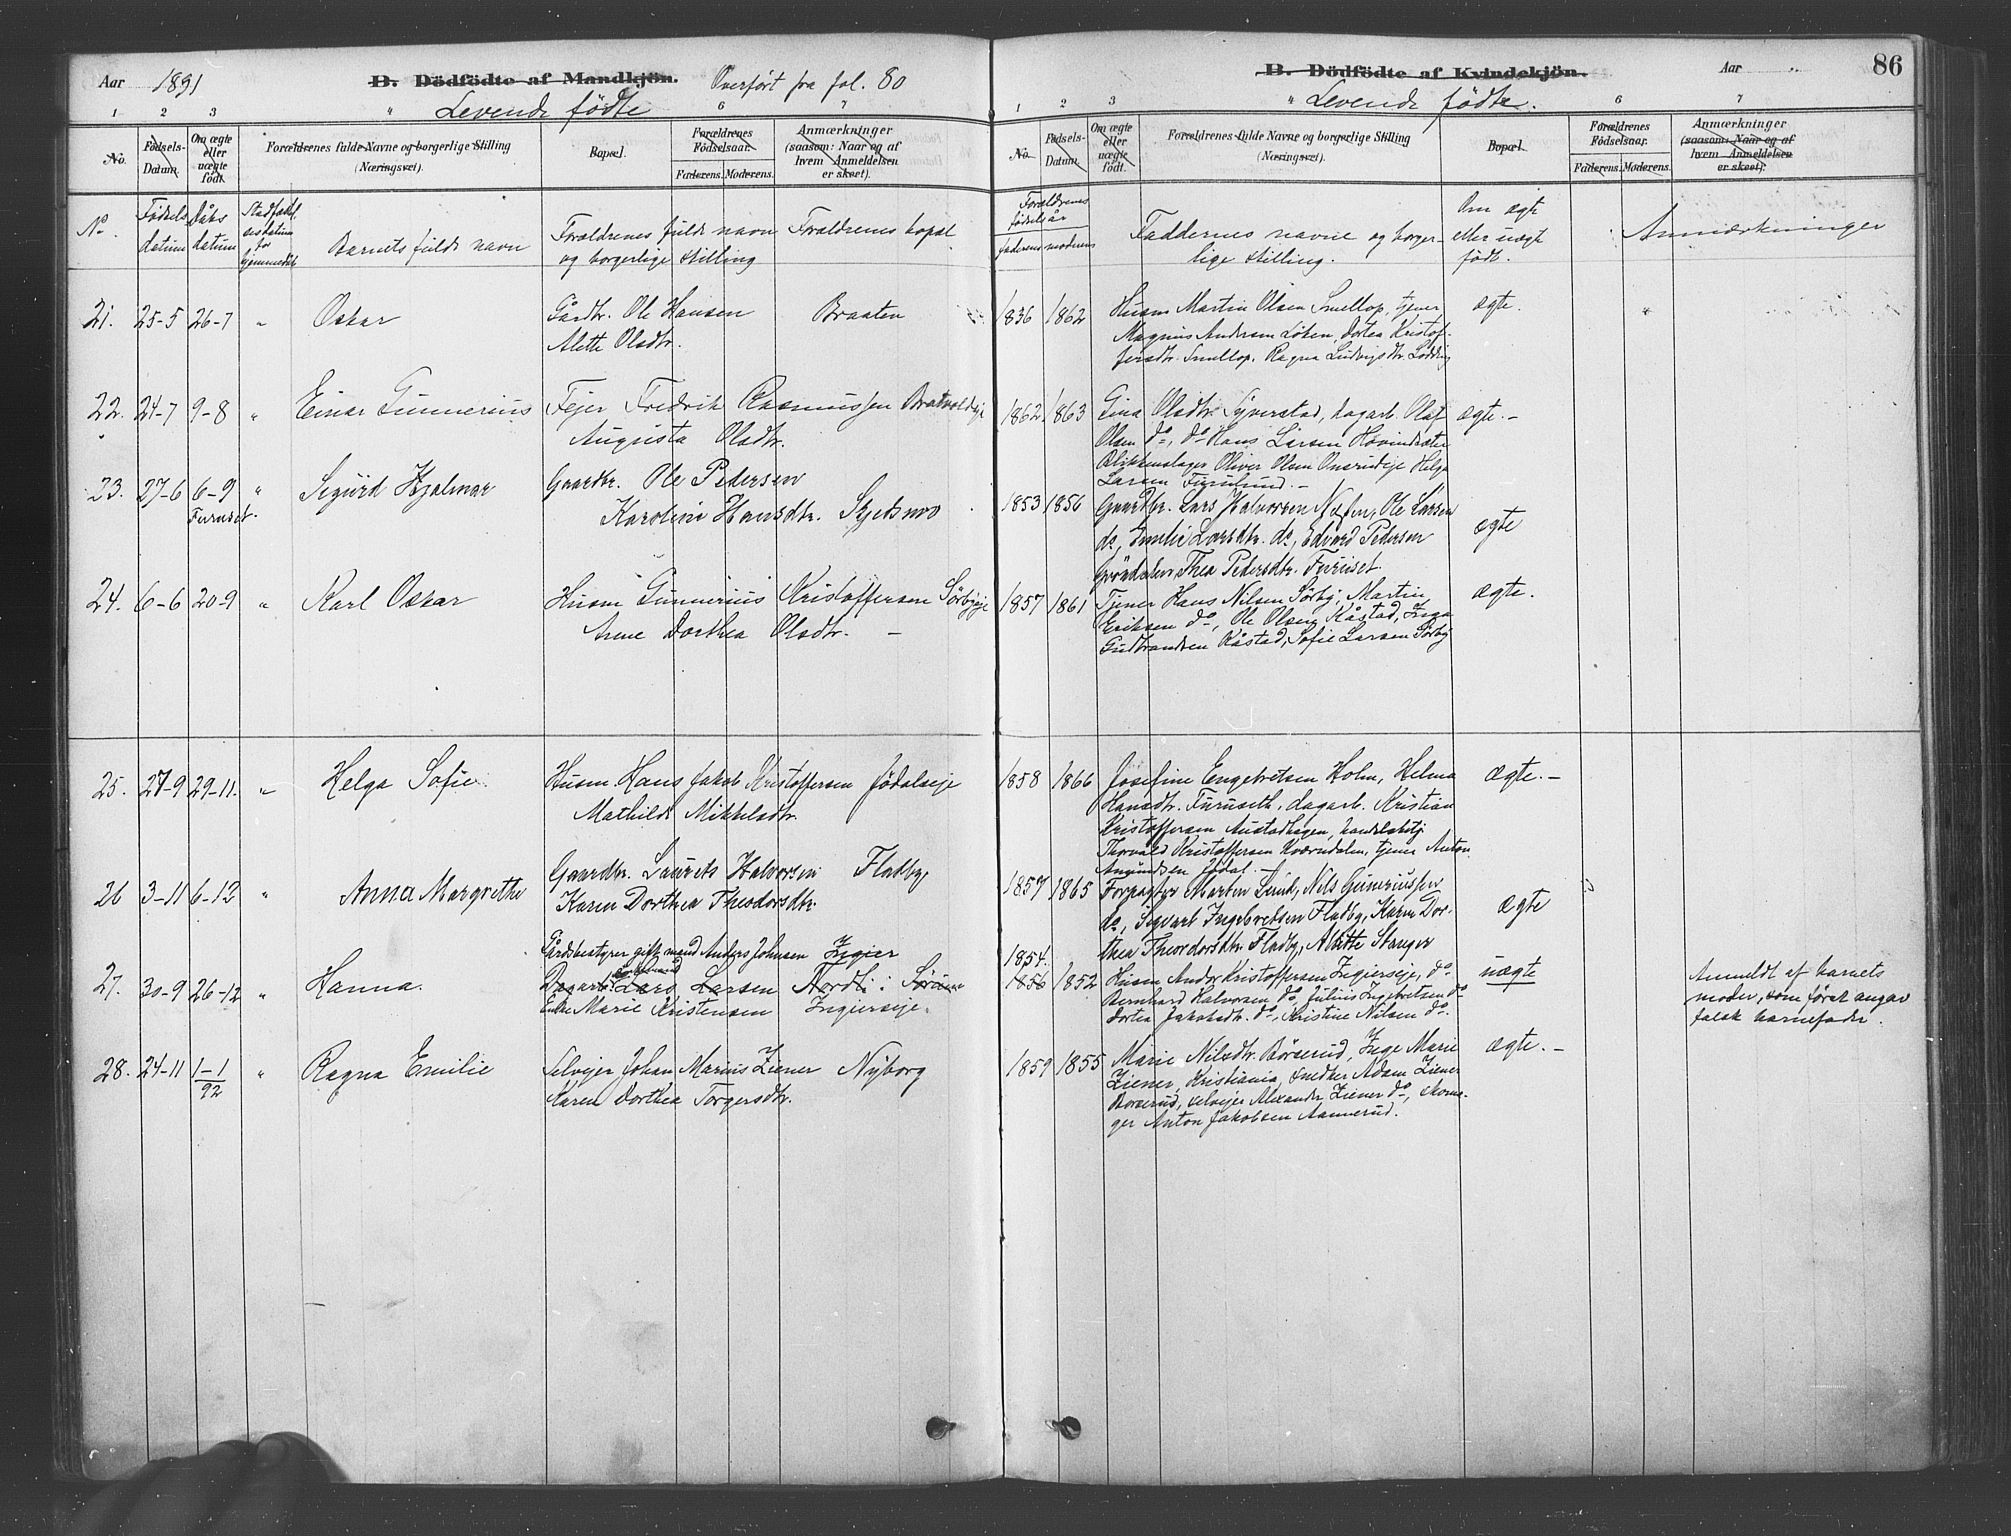 Aar 1891
B. Dödfödte af Mandkjön. Overført fra fol. 80
Levende fødte
1 2 3 " 6 7
No. Födsels-Datum. Om ægte eller uægte födt. Forældrenes fulde Navne og borgerlige Stilling (Næringsvei). Bopæl. Forældrenes Födselsaar. Faderens. Moderens. Anmærkninger (saasom: Naar og af hvem Anmeldelsen er skeet).
No. Fødsels datum Dåbs datum Barnets fulde navn Forældrenes fulde navn og borgerlige stilling Forældrenes bopæl
21. 25-5 26-7 " Oskar Gårdbr. Ole Hansen Braaten
Alette Olsdtr.
22. 24-7 9-8 " Einar Gunnerius Fejer Fredrik Rasmussen Bratvoldeje
Augusta Olsdtr.
23. 27-6 6-9 " Sigurd Hjalmar Gaardbr. Ole Pedersen
Furuset. Karoline Hansdtr. Skjetsmo
24. 6-6 20-9 " Karl Oskar Husm Gunnerius Kristoffersen Sörbyeje
Anne Dorthea Olsdtr. —
25. 27-9 29-11. " Helga Sofie Husm. Hans Jakob Kristoffersen Jödalseje
Mathilde Mikkelsdtr.
26 3-11 6-12 " Anna Margrethe Gaardbr. Laurits Halvorsen Fladby
Karen Dorthea Theodorsdtr.
Gårdsbestyrer gift mand Anders Johnsen Ingier
27. 30-9 26-12 " Hanna. Dagarb. Lars Larsen Nordli i Sörum
Enke Marie Kristensen Ingierseje.
28. 24-11 1-1/92 " Ragna Emilie Selvejer Johan Marius Ziener Nyborg
Karen Dorthea Torgersdtr.
B. Dödfödte af Kvindekjön. Aar 86
" Levende fødte.
1 2 3 6 7
No. Födsels-Datum. Om ægte eller uægte födt. Forældrenes fulde Navne og borgerlige Stilling (Næringsvei). Bopæl. Forældrenes Födselsaar. Faderens. Moderens. Anmærkninger (saasom: Naar og af hvem Anmeldelsen er skeet).
Forældrenes fødselsår faderens moderens Faddernes navne og borgerlige stilling. Om ægte eller uægte født. Anmærkninger
1836 1862 Husm Martin Olsen Smellop, tjener ægte.
Magnus Andersen Löken, Dortea Kristof-
fersdtr. Smellop, Ragna Ludvigsdtr.
1862 1863 Gina Olsdtr. Syverstad, dagarb. Olaf ægte.—
Olsen do, do Hans Larsen Hovindsæter
Blikkenslager Oliver Olsen Onsrudeje Helga
Larsen Furulund.—
1853 1856 Gaardbr. Lars Halvorsen Næfen, Ole Larsen
do, Emilie Larsdtr. do, Edvard Pedersen ægte
Gröndalen, Thea Pedersdtr. Furuset.
1857 1861 Tjener Hans Nilsen Sörby, Martin ægte.
Eriksen do, Ole Olsen Råstad, Inga
Gudbrandsen Råstad, Sofie Larsen Sörby
1858 1866 Josefine Engebretsen Holm, Helma ægte.—
Hansdtr. Furuseth, dagarb. Kristian
Kristoffersen Austadhagen, handelsbetj.
Thorvald Kristoffersen Kværndalen, tjener Anton
Amundsen Jödal.—
1857 1865 Forpagter Marten Lund, Nils Guneriussen
do, Sigvart Ingebretsen Fladby, Karen Dor- ægte
thea Theodorsdtr. Fladby, Alette Stanger
1854.
1856 1852 Husm Anders Kristoffersen Ingierseje, do uægte Anmeldt af barnets
Bernhard Halvorsen do, Julius Ingebretsen do moder, som først angav
Dortea Jakobsdtr. do, Kristine Nilsen do. falsk barnefader.
1859 1855 Marie Nilsdtr. Börserud, Inge Marie ægte.—
Ziener, Kristiania, snedker Adam Ziener
Börserud, selvejer Alexander Ziener do, skoma-
ger Anton Jakobsen Aamerud.